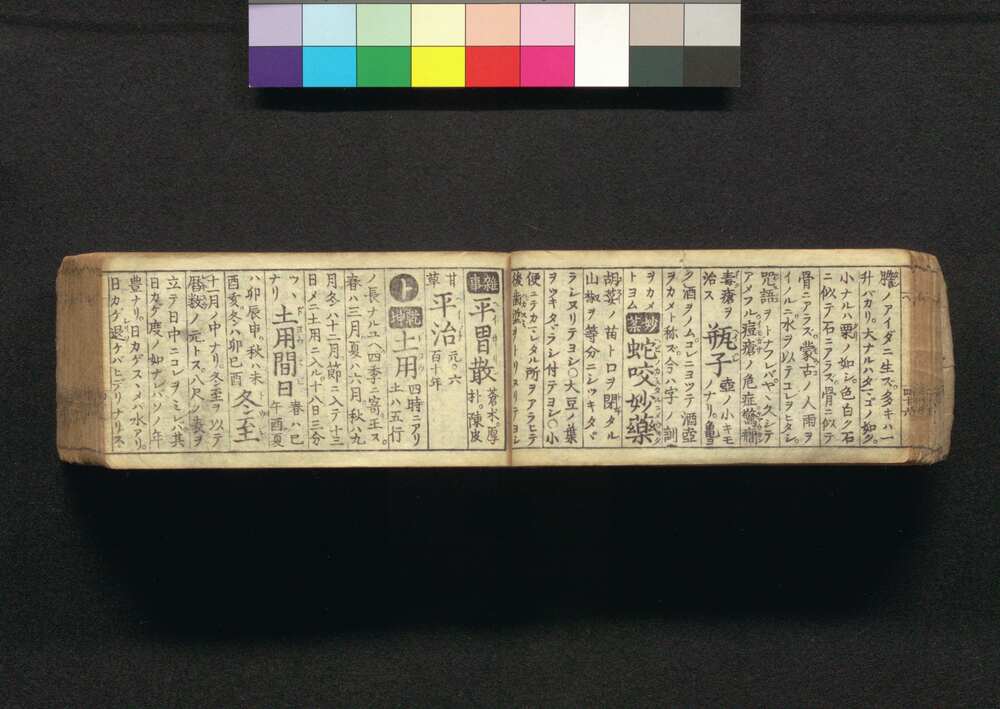 躰ノアイダニ生ズ多キハ一
升バカリ。大ナルハタマゴノ如ク。
小ナルハ栗ノ如シ色白ク石
ニ似テ石ニアラズ骨ニ似テ
骨ニアラズ。蒙古ノ人雨ヲ
イノルニ水ヲ以テコレヲヒタシ
咒語ヲトナフレバヤヽ久シテ
アメフル痘瘡ノ危症驚癇
毒瘡ヲ治ス 瓶子 壺ノ小キモノナリ。
ク酒ヲノムコレニヨツテ酒壺
ヲカメト称ス。今ハ字ノ訓
ヲカメトヨム 妙薬 蛇咬妙藥
胡葉ノ苗トロヲ閉タル
山椒ヲ等分ニシツキタヾ
ラシヌリテヨシ〇大豆ノ葉
ヲツキタヾラシ付テヨシ〇小
便ニテカミタル所ヲアラヒテ
後歯滋ヲトリヌリテヨシ
雜事 平胃散 蒼朮。厚朴。陳皮
甘草 平治 元。六百十年
ト 乾坤 土用 四時ニアリ土ハ五行
ノ長ナルユヘ四季ニ寄。王ス
春ハ三月夏ハ六月。秋ハ九
月冬ハ十二月節ニ入テ十三
日メニ土用ニ入ル十八日三分
ツヽナリ 土用間日 春ハ巳午酉夏
ハ卯辰申。秋ハ未
酉亥冬ハ卯巳酉 冬至
十一月ノ中ナリ。冬至ヲ以テ
暦数ノ元トス。八尺ノ表ヲ
立テ日中ニコレヲヽミバ其
日カゲ度ノ如ナレバソノ年
豊ナリ。日カゲスヽメバ水アリ。
日カゲ退ケバヒデリナリス